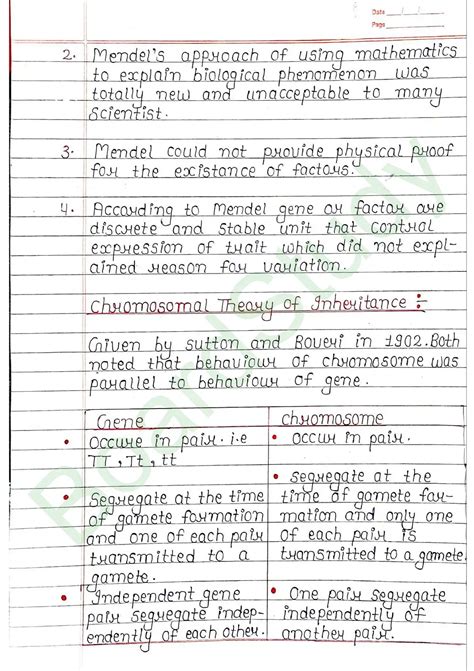 Date
Page
2. Mendel's approach of using mathematics
to explain biological phenomenon was
totally new and unacceptable to many
scientist.
3. Mendel could not provide physical proof
for the existance of factors.
4. According to Mendel gene or factor are
discrete and stable unit that control
expression of trait which did not expl-
ained reason for variation.
Chromosomal Theory of Inheritance :-
Given by sutton and Boveri in 1902. Both
noted that behaviour of chromosome was
parallel to behaviour of gene.
Gene
• Occure in pair. i.e
TT, Tt, tt
• Segregate at the time
of gamete formation
and one of each pair
transmitted to a
gamete.
• Independent gene
pair segregate indep-
endently of each other.
chromosome
• Occur in pair.
• segregate at the
time of gamete for-
mation and only one
of each pair is
transmitted to a gamete.
• One pair segregate
independently of
another pair.
BoardStudy